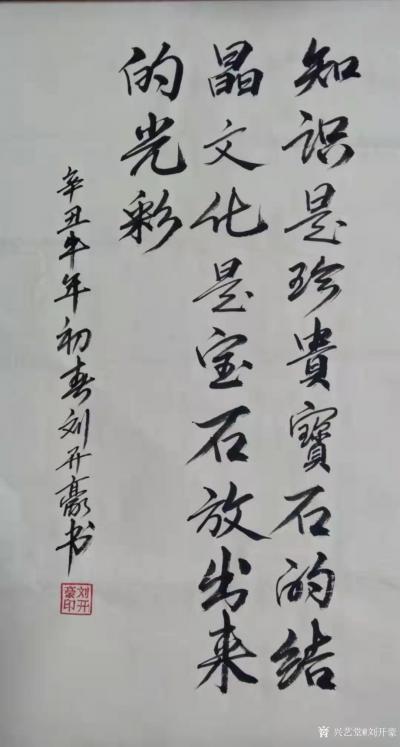 知识是珍貴寶石的结
晶文化是宝石放出来
的光彩
辛丑牛年初春刘开豪书
刘开
豪印
兴艺堂@刘开豪